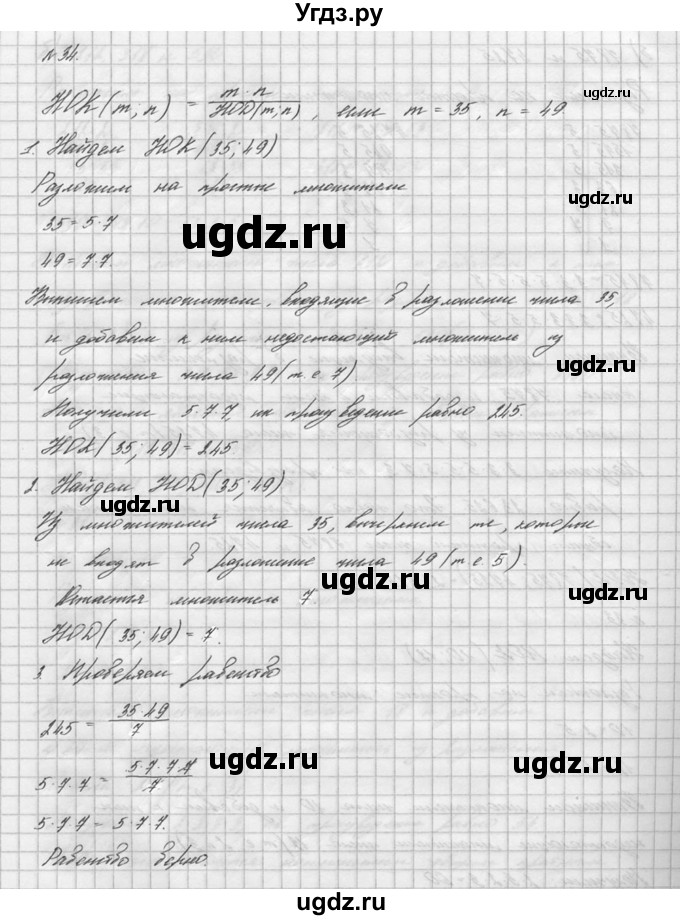 Угдз.ру
№ 34.
НОК(m, n) = m·n / НОD(m;n), если m = 35, n = 49.
1. Найдем НОК(35; 49)
Разложим на простые множители
ugdz.ru
35 = 5·7
ugdz.ru
49 = 7·7.
Выпишем множители, входящие в разложение числа 35,
и добавим к ним недостающий множитель из
ugdz.ru
разложения числа 49 (т е 7)
Получили 5·7·7, их произведение равно 245.
ugdz.ru
НОК(35; 49) = 245.
2. Найдем НОD(35; 49)
ugdz.ru
Из множителей числа 35, вычеркнем те, которые
не входят в разложение числа 49 (т е 5)
ugdz.ru
ugdz.ru
Остается множитель 7.
НОD(35; 49) = 7.
3. Проверяем равенство
245 = 35·49 / 7
ugdz.ru
ugdz.ru
5·7·7 = 5·7·7·7 / 7
5·7·7 = 5·7·7.
Равенство верно.
ugdz.ru
ugdz.ru